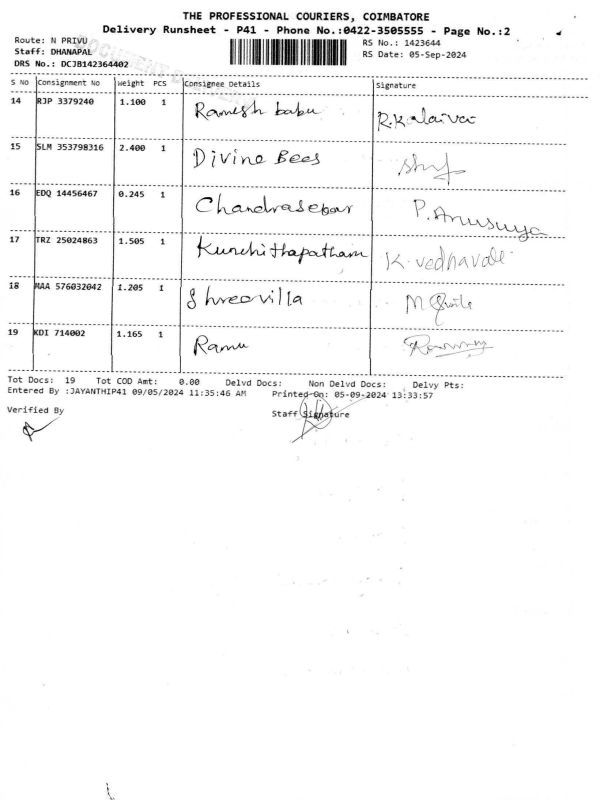 THE PROFESSIONAL COURIERS, COIMBATORE
Delivery Runsheet - P41 - Phone No.:0422-3505555 - Page No.:2
Route: N PRIVU RS No.: 1423644
Staff: DHANAPAL RS Date: 05-Sep-2024
DRS No.: DCJB142364402
S No Consignment No Weight PCS Consignee Details Signature
14 RJP 3379240 1.100 1 Ramesh babu R.Kalaivai
15 SLM 353798316 2.400 1 Divine Bees
16 EDQ 14456467 0.245 1 Chandrasekar P.Anusuya
17 TRZ 25024863 1.505 1 Kunchithapatham K.vedhavalli
18 MAA 576032042 1.205 1 Shreevilla
19 KDI 714002 1.165 1 Ramu
Tot Docs: 19 Tot COD Amt: 0.00 Delvd Docs: Non Delvd Docs: Delvy Pts:
Entered By :JAYANTHIP41 09/05/2024 11:35:46 AM Printed On: 05-09-2024 13:33:57
Verified By Staff Signature